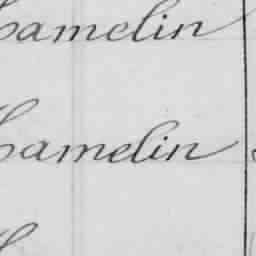 Hamelin
Hamelin